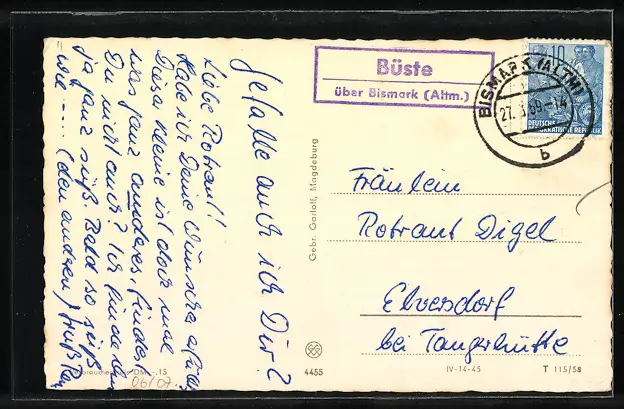 Gefalle auch ich Dir?
Liebe Rotraut!
Habe ich Deine Wünsche erfüllt
Diese Kleine ist doch mal
was ganz anderes, findest
Du nicht auch? Ich finde ihn
ja ganz süß. Bald so süß
wie ..... (den anderen)
Büste
über Bismark (Altm.)
BISMARK (ALTM)
27. 59.-14
b
10
DEUTSCHE
DEMOKRATISCHE REPUBLIK
Fräulein
Rotraut Digel
Elversdorf
bei Tangerhütte
Gebr. Garloff, Magdeburg
DM -,15
06/07
4455
IV-14-45
T 115/58